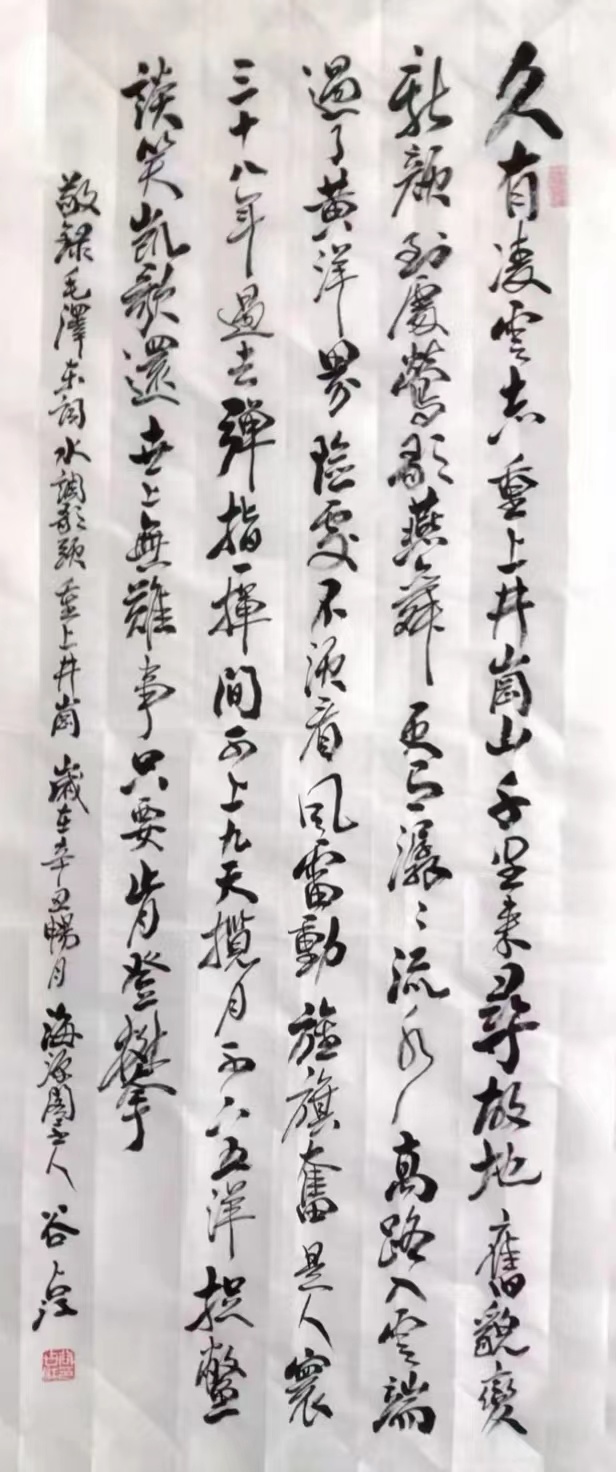 久有凌雲志重上井崗山千里来尋故地舊貌變
新顏到處鶯歌燕舞更有潺〻流水高路入雲端
過了黃洋界險處不須看風雷動旌旗奮是人寰
三十八年過去彈指一揮間可上九天攬月可下五洋捉鱉
談笑凱歌還世上無難事只要肯登攀
敬録毛澤東詞水調歌頭重上井崗 歲在辛丑暢月 海源閣主人 谷